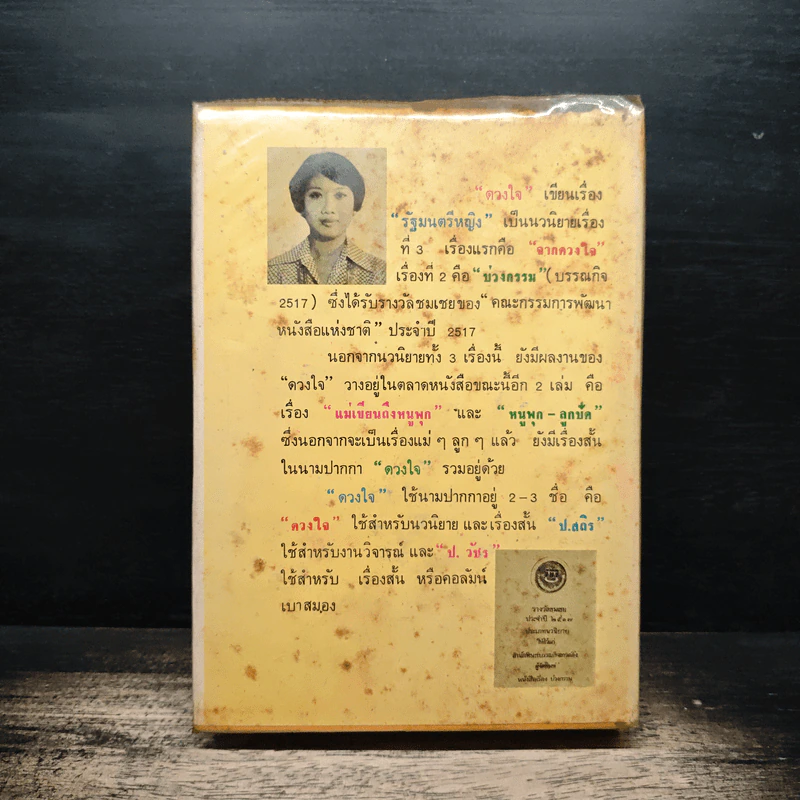 “ดวงใจ” เขียนเรื่อง
“รัฐมนตรีหญิง” เป็นนวนิยายเรื่อง
ที่ 3 เรื่องแรกคือ “จากดวงใจ”
เรื่องที่ 2 คือ “บ่วงกรรม” (บรรณกิจ
2517) ซึ่งได้รับรางวัลชมเชยของ “คณะกรรมการพัฒนา
หนังสือแห่งชาติ” ประจำปี 2517
นอกจากนวนิยายทั้ง 3 เรื่องนี้ ยังมีผลงานของ
“ดวงใจ” วางอยู่ในตลาดหนังสือขณะนี้อีก 2 เล่ม คือ
เรื่อง “แม่เขียนถึงหนูพุก” และ “หนูพุก – ลูกปัด”
ซึ่งนอกจากจะเป็นเรื่องแม่ ๆ ลูก ๆ แล้ว ยังมีเรื่องสั้น
ในนามปากกา “ดวงใจ” รวมอยู่ด้วย
“ดวงใจ” ใช้นามปากกาอยู่ 2–3 ชื่อ คือ
“ดวงใจ” ใช้สำหรับนวนิยาย และเรื่องสั้น “ป.สถิร”
ใช้สำหรับงานวิจารณ์ และ “ป. วัชร”
ใช้สำหรับ เรื่องสั้น หรือคอลัมน์
เบาสมอง
รางวัลชมเชย
ประจำปี ๒๕๑๗
ประเภทนวนิยาย